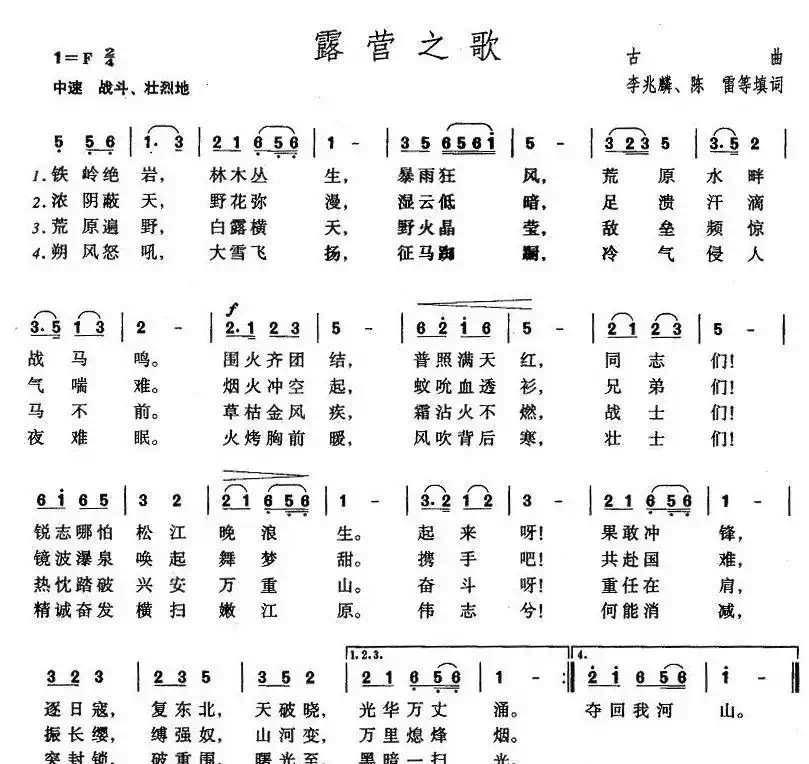 露营之歌
1=F 2/4
古 曲
中速 战斗、壮烈地
李兆麟、陈 雷等填词
5 5 6 | 1· 3 | 2 1 6 5 6 | 1 - | 3 5 6561 | 5 - | 3 2 3 5 | 3· 5 2 |
1.铁岭绝岩，林木丛 生，暴雨狂 风，荒 原 水 畔
2.浓阴蔽天，野花弥 漫，湿云低 暗，足 溃 汗 滴
3.荒原遍野，白露横 天，野火晶 莹，敌 垒 频 惊
4.朔风怒吼，大雪飞 扬，征马踟 蹰，冷 气 侵 人
3· 5 1 3 | 2 - | 2· 1 2 3 | 5 - | 6 2 1 6 | 5 - | 2 1 2 3 | 5 - |
f
战 马 鸣。围火齐团 结，普照满天 红，同 志 们！
气 喘 难。烟火冲空 起，蚊吮血透 衫，兄 弟 们！
马 不 前。草枯金风 疾，霜沾火不 燃，战 士 们！
夜 难 眠。火烤胸前 暖，风吹背后 寒，壮 士 们！
6 1 6 5 | 3 2 | 2 1 6 5 6 | 1 - | 3· 2 1 2 | 3 - | 2 1 6 5 6 | 1 - |
锐志哪怕 松 江 晚 浪 生。起 来 呀！果敢冲 锋，
镜波瀑泉 唤 起 舞 梦 甜。携 手 吧！共赴国 难，
热忱踏破 兴 安 万 重 山。奋 斗 呀！重任在 肩，
精诚奋发 横 扫 嫩 江 原。伟 志 兮！何能消 减，
1.2.3.
4.
3 2 3 | 2 3 5 | 3 5 2 | 2 1 6 5 6 | 1 - :‖ 2 1 6 5 6 | 1 - ‖
逐日寇，复东北，天破晓，光华万丈 涌。夺回我河 山。
振长缨，缚强奴，山河变，万里熄烽 烟。
突封锁，破重围，曙光至，黑暗一扫 光。